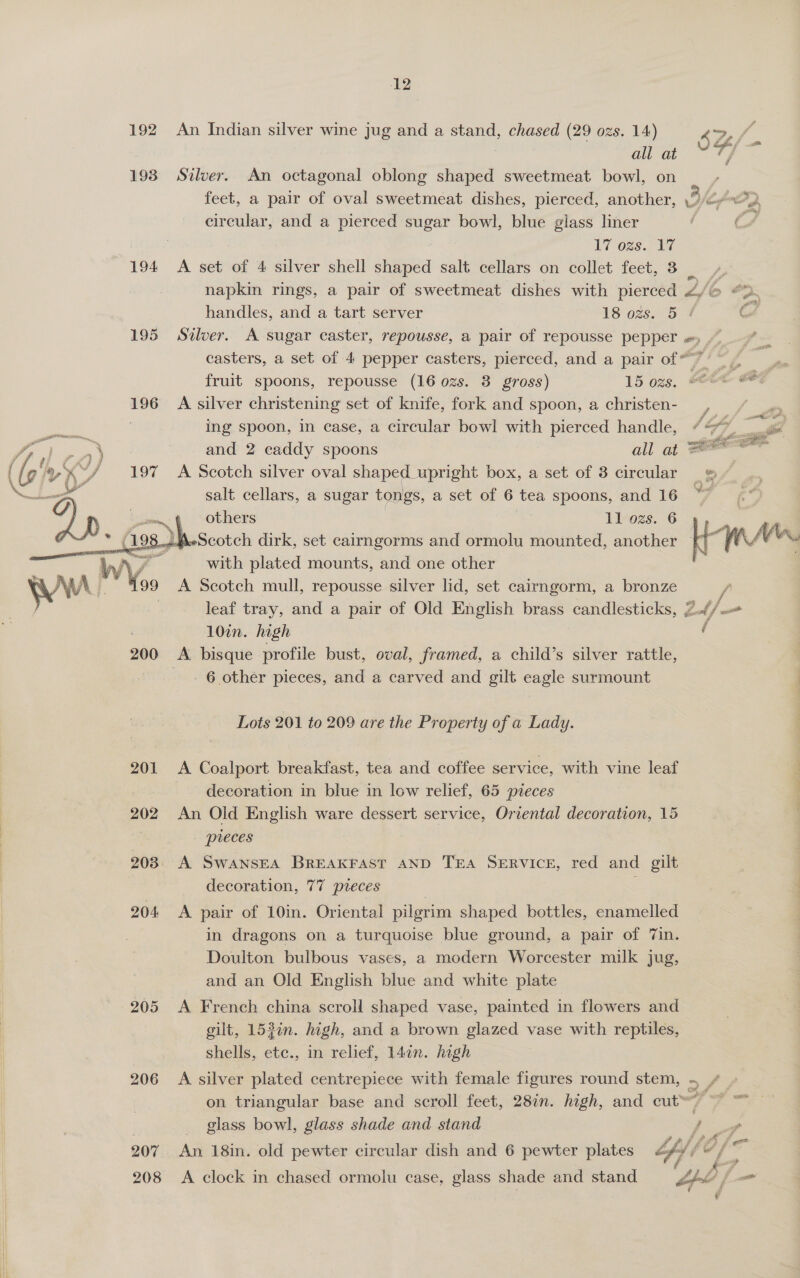 12
192 An Indian silver wine jug and a stand, chased (29 ozs. 14)
all at
193 Silver. An octagonal oblong shaped sweetmeat bowl, on
feet, a pair of oval sweetmeat dishes, pierced, another,
circular, and a pierced sugar bowl, blue glass liner
17 ozs. 17
194 A set of 4 silver shell shaped salt cellars on collet feet, 3
napkin rings, a pair of sweetmeat dishes with pierced
handles, and a tart server 18 ozs. 5
195 Silver. A sugar caster, repousse, a pair of repousse pepper
casters, a set of 4 pepper casters, pierced, and a pair of
fruit spoons, repousse (16 ozs. 3 gross) 15 ozs.
196 A silver christening set of knife, fork and spoon, a christen-
ing spoon, in case, a circular bowl with pierced handle,
and 2 caddy spoons all at
197 A Scotch silver oval shaped upright box, a set of 3 circular
salt cellars, a sugar tongs, a set of 6 tea spoons, and 16
others 11 ozs. 6
198 A Scotch dirk, set cairngorms and ormolu mounted, another
with plated mounts, and one other
199 A Scotch mull, repousse silver lid, set cairngorm, a bronze
leaf tray, and a pair of Old English brass candlesticks,
10in. high
200 A bisque profile bust, oval, framed, a child's silver rattle,
6 other pieces, and a carved and gilt eagle surmount
Lots 201 to 209 are the Property of a Lady.
201 A Coalport breakfast, tea and coffee service, with vine leaf
decoration in blue in low relief, 65 pieces
202 An Old English ware dessert service, Oriental decoration, 15
pieces
203 A SWANSEA BREAKFAST AND TEA SERVICE, red and gilt
decoration, 77 pieces
204 A pair of 10in. Oriental pilgrim shaped bottles, enamelled
in dragons on a turquoise blue ground, a pair of 7in.
Doulton bulbous vases, a modern Worcester milk jug,
and an Old English blue and white plate
205 A French china scroll shaped vase, painted in flowers and
gilt, 15¾in. high, and a brown glazed vase with reptiles,
shells, etc., in relief, 14in. high
206 A silver plated centrepiece with female figures round stem,
on triangular base and scroll feet, 28in. high, and cut
glass bowl, glass shade and stand
207 An 18in. old pewter circular dish and 6 pewter plates
208 A clock in chased ormolu case, glass shade and stand